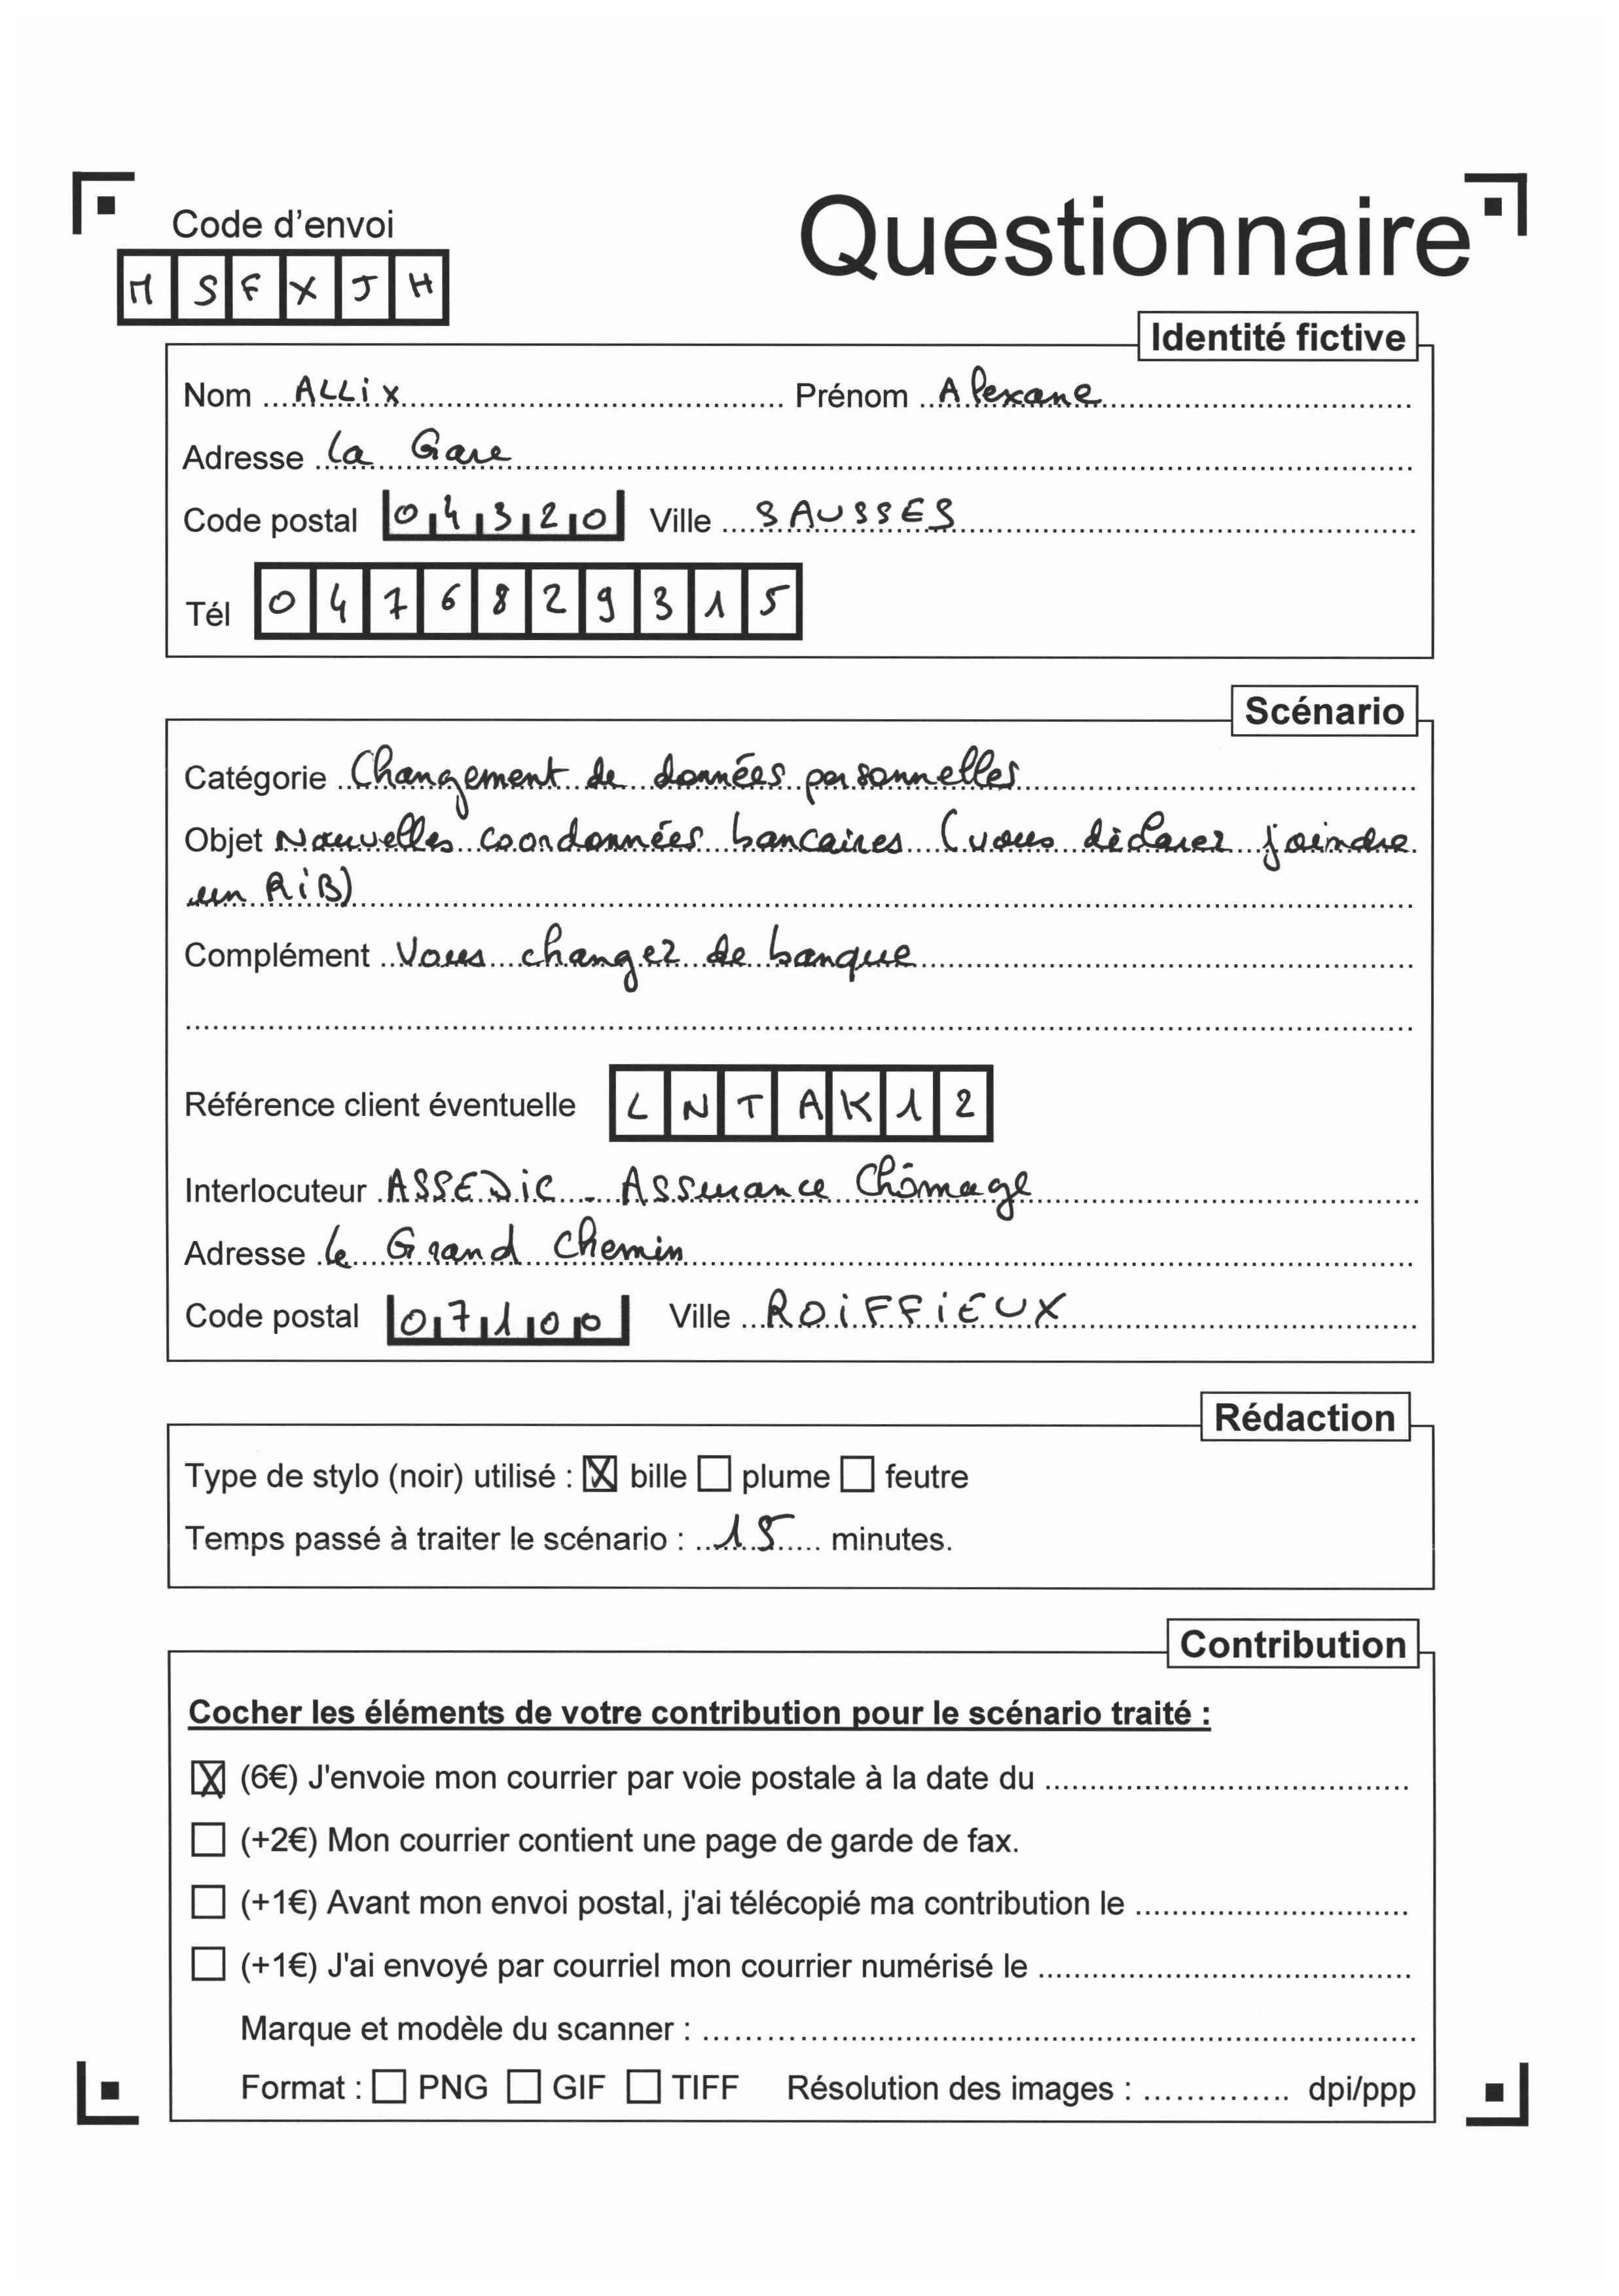 Code d'envoi
Questionnaire
M S F X J H
Identité fictive
Nom ALLiX Prénom Alexane
Adresse La Gare
Code postal 04320 Ville SAUSSES
Tél 0476829315
Scénario
Catégorie Changement de données personnelles
Objet Nouvelles coordonnées bancaires (vous déclarez joindre
un RiB)
Complément Vous changez de banque
Référence client éventuelle LNTAK12
Interlocuteur ASSEDiC - Assurance Chômage
Adresse Le Grand Chemin
Code postal 07100 Ville ROiFFiEUX
Rédaction
Type de stylo (noir) utilisé : ☒ bille ☐ plume ☐ feutre
Temps passé à traiter le scénario : 15 minutes.
Contribution
Cocher les éléments de votre contribution pour le scénario traité :
☒ (6€) J'envoie mon courrier par voie postale à la date du
☐ (+2€) Mon courrier contient une page de garde de fax.
☐ (+1€) Avant mon envoi postal, j'ai télécopié ma contribution le
☐ (+1€) J'ai envoyé par courriel mon courrier numérisé le
Marque et modèle du scanner :
Format : ☐ PNG ☐ GIF ☐ TIFF Résolution des images : dpi/ppp